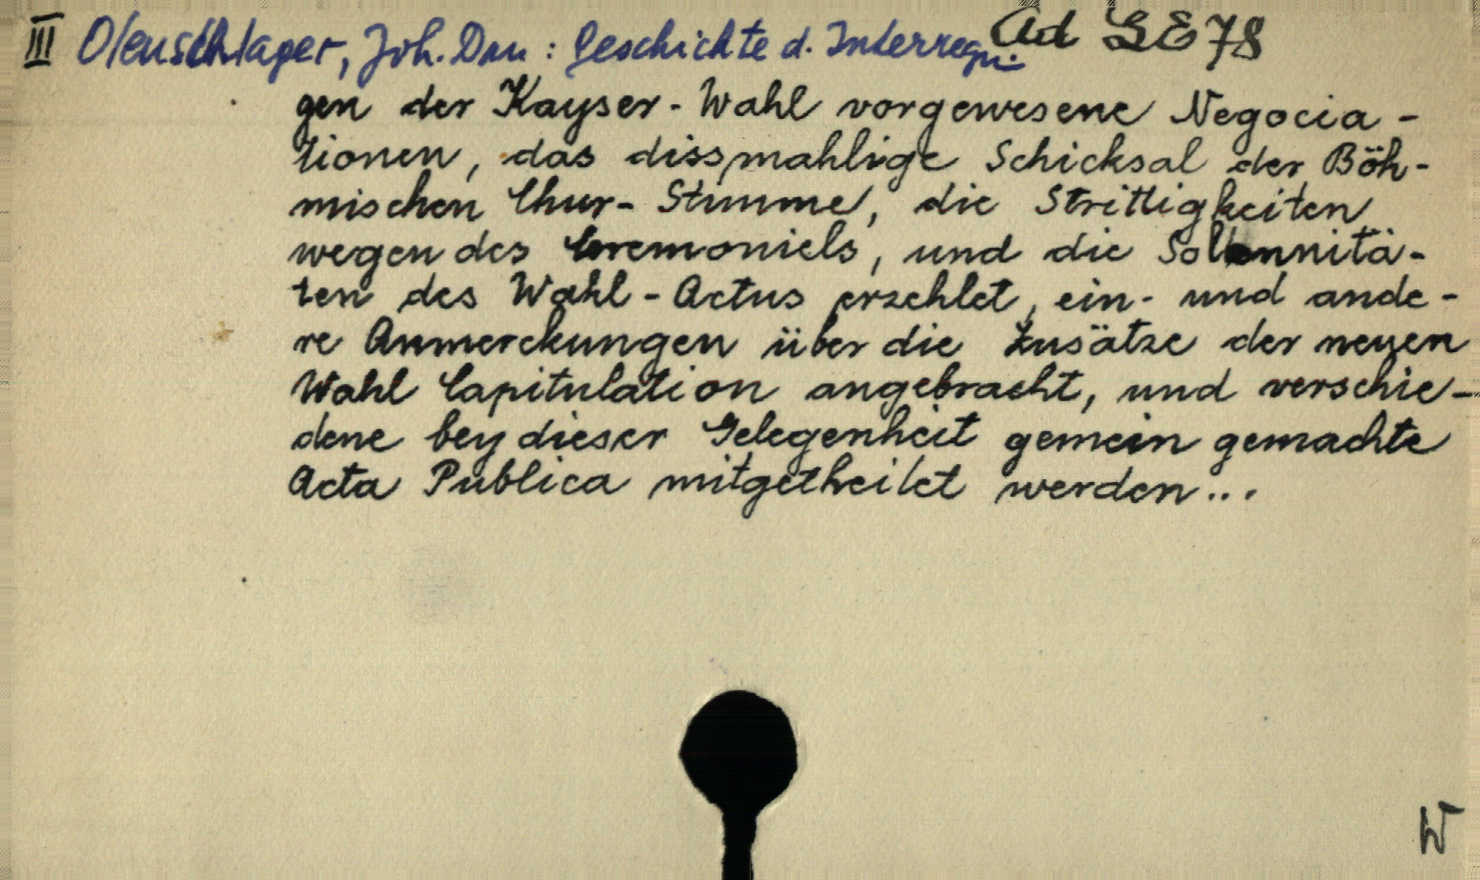 III Olenschlager, Joh. Dan: Geschichte d. Interregni. Ad GE 78
gen der Kayser-Wahl vorgewesene Negocia-
tionen, das dissmahlige Schicksal der Böh-
mischen Chur-Stimme, die Strittigkeiten
wegen des Ceremoniels, und die Sollennitä-
ten des Wahl-Actus erzehlet, ein- und ande-
re Anmerckungen über die Zusätze der neuen
Wahl Capitulation angebracht, und verschie-
dene bey dieser Gelegenheit gemein gemachte
Acta Publica mitgetheilet werden...
W